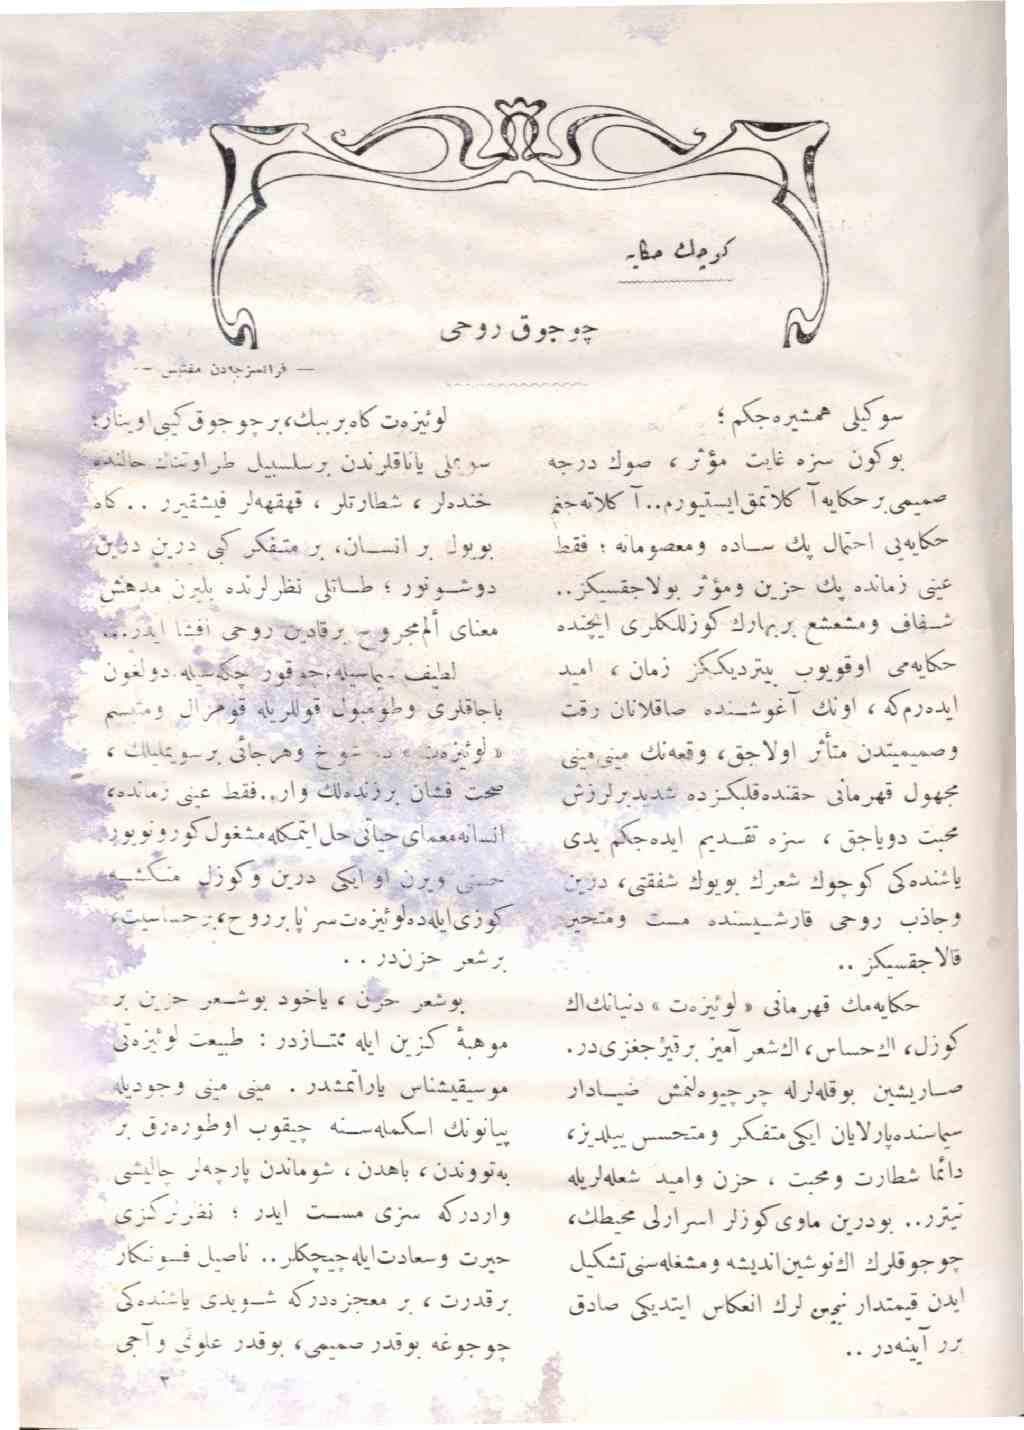 كوچك حكايه
چوجوق روحى
— فرانسزجه‌دن مقتبس —
سوكيلى همشيره‌جكم ؛
بوكون سزه غايت مؤثر ، صوك درجه
صميمى بر حكايه آ كلاتمق ايستيورم.. آ كلاته‌جغم
حكايه‌يى احتمال پك ساده ومعصومانه ؛ فقط
عينى زمانده پك حزين ومؤثر بولاجقسيكز..
شفاف ومشعشع بر بهارك كوزللكلرى ايچنده
حكايه‌مى اوقويوب بيترديككز زمان ، اميد
ايده‌رم‌كه ، اونك آغوشنده صاقلانان رقت
وصميميتدن متأثر اولاجق، وقعه‌نك مينى‌مينى
مجهول قهرمانى حقنده قلبكزده شديد بر لرزش
محبت دوياجق ، سزه تقديم ايده‌جكم يدى
ياشنده‌كى كوچوك شعرك بويوك شفقتى، درين
وجاذب روحى قارشيسنده مست ومتحير
قالاجقسيكز ..
حكايه‌مك قهرمانى « لوئيزه‌ت » دنيانك اك
كوزل، اك حساس، اك شعر آميز بر قيزجغزى‌در.
صاريشين بوقله‌لرله چرچيوه‌لنمش ضيادار
سيماسنده پارلايان ايكى متفكر ومتحسس ييلديز،
دائما شطارت ومحبت ، حزن واميد شعله‌لريله
تيترر.. بودرين ماوى كوزلر اسرارلى محيطك،
چوجوقلرك اك نوشين انديشه ومشغله‌سنى تشكيل
ايدن قيمتدار لرك انعكاس ايتديكى صادق
برر آيينه‌در ..
لوئيزه‌ت كاه بر ببك، بر چوجوق كبى اوينار؛
سويملى ياناقلرندن بر سلسبيل طراوتناك حالنده
خنده‌لر ، شطارتلر ، قهقهه‌لر فيشقيرر .. كاه
بويوك بر انسان، بر متفكر كبى درين درين
دوشونور ؛ طاتلى نظرلرنده بليرن مدهش
معناى ألم مجروح بر قادين روحى افشا ايدر...
لطيف سيماسيله، چوقور چكه‌سيله، دولغون
باجاقلرى وطومبول قوللريله قومرال ومتبسم
« لوئيزه‌ت » ده شوخ وهرجائى بر سويمليلك ،
صحت فشان بر زنده‌لك وار.. فقط عينى زمانده،
انسانه معماى حياتى حل ايتمكله مشغول كورونويور
حسنى ويرن او ايكى درين وكوزل منكشه
كوزى ايله ده لوئيزه‌ت سراپا بر روح، بر حساسيت،
بر شعر حزن‌در ..
بوشعر حزن ، ياخود بوشعر حزين بر
موهبۀ كزين ايله ممتازدر : طبيعت لوئيزه‌تى
موسيقيشناس ياراتمشدر . مينى مينى وجوديله
پيانونك اسكمله‌سنه چيقوب اوطوره‌رق بر
به‌تووندن، باهدن ، شوماندن پارچه‌لر چاليشى
واردركه سزى مست ايدر ؛ نظرلركزى
حيرت وسعادت ايله چيچكلر.. ناصيل فسونكار
بر قدرت ، بر معجزه‌دركه شو يدى ياشنده‌كى
چوجوغه بوقدر صميمى، بوقدر علوى وآجى
٣